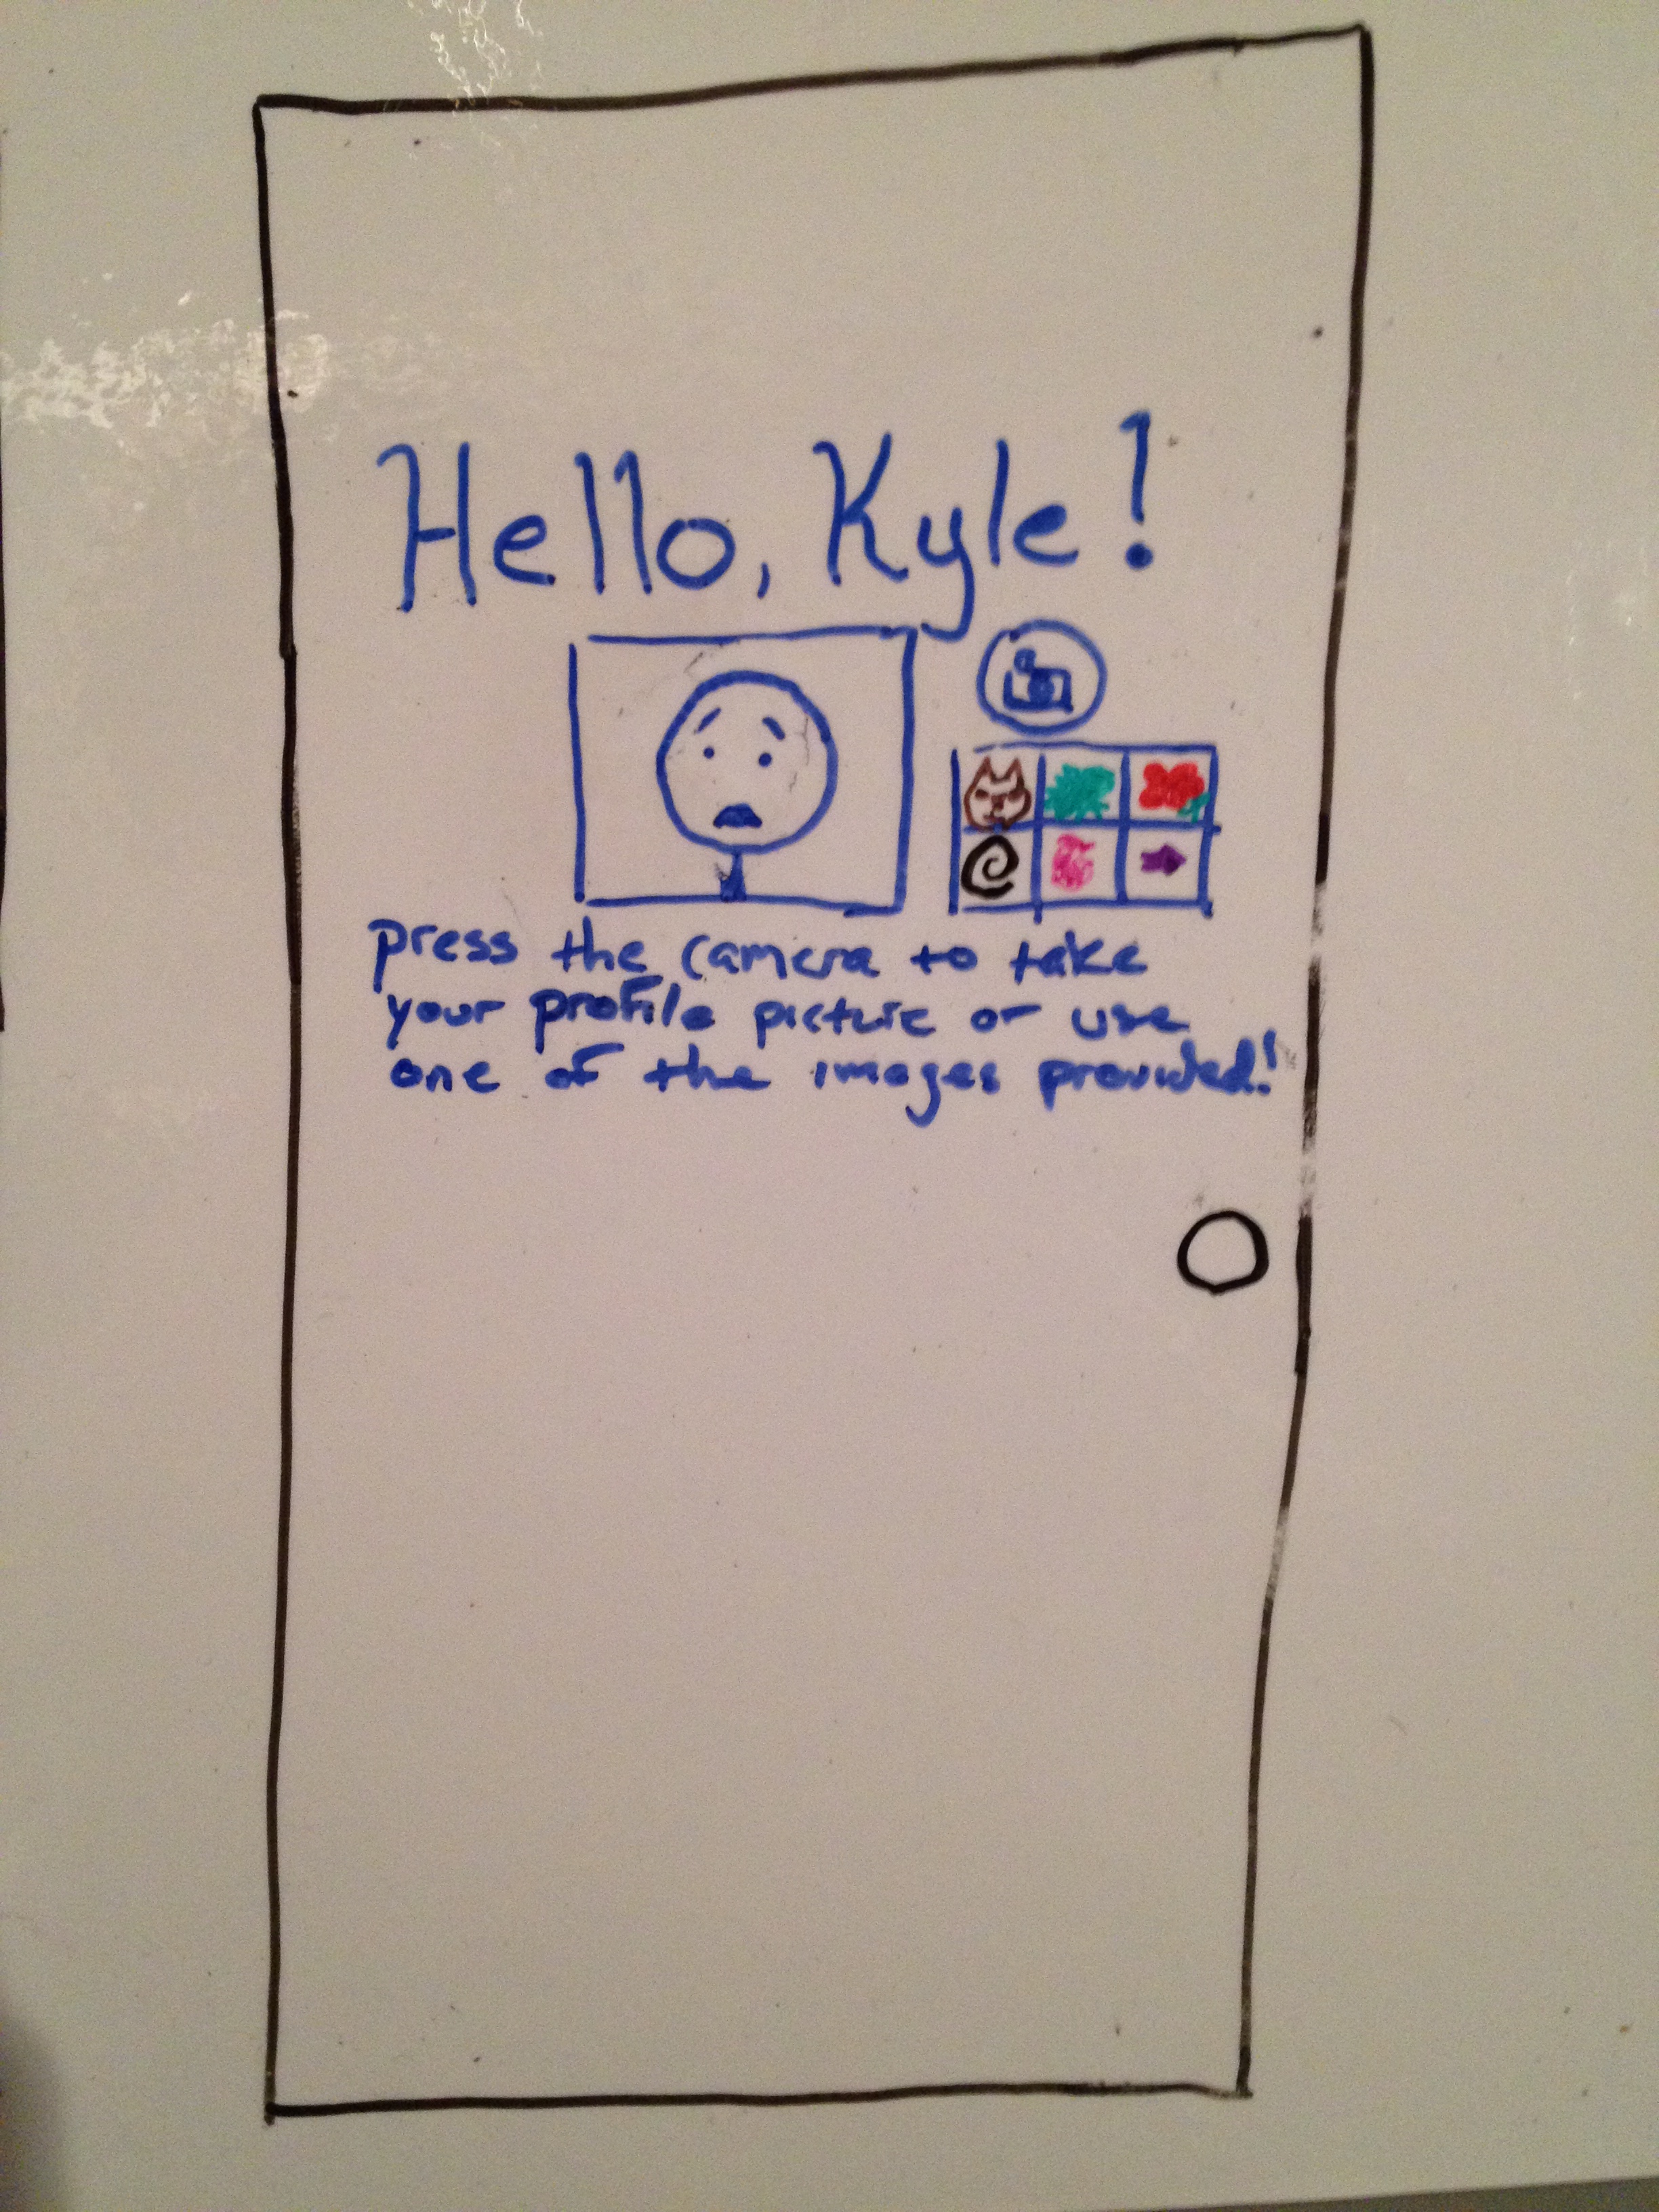 Hello, Kyle!
press the camera to take
your profile picture or use
one of the images provided!